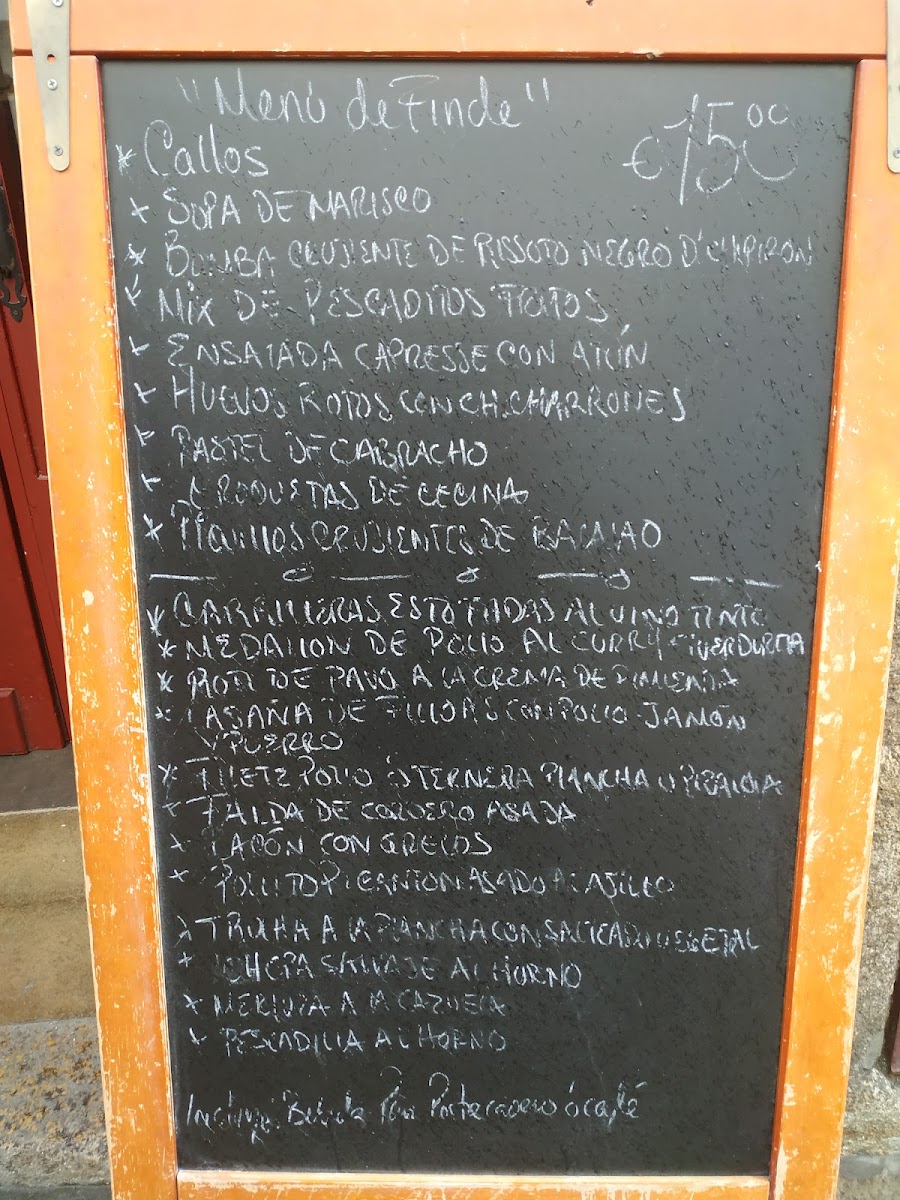 "Menú de Finde"
€15,00
* Callos
* SOPA DE MARISCO
* BOMBA CRUJIENTE DE RISSOTO NEGRO D'CHIPIRON
* MIX DE PESCADITOS FRITOS
* ENSALADA CAPRESSE CON ATÚN
* HUEVOS ROTOS CON CHICHARRONES
* PASTEL DE CABRACHO
* CROQUETAS DE CECINA
* PIQUILLOS CRUJIENTES DE BACALAO
* CARRILLERAS ESTOFADAS AL VINO TINTO
* MEDALLON DE POLLO AL CURRY
* ROTI DE PAVO A LA CREMA DE PIMIENTA
* LASAÑA DE FILLOAS CON POLLO JAMÓN
Y PUERRO
* FILETE POLLO Ó TERNERA PLANCHA
* FALDA DE CORDERO ASADA
* LACÓN CON GRELOS
* POLLITO PICANTON ASADO AL AJILLO
* TRUCHA A LA PLANCHA CON SALTEADO VEGETAL
* CHEPA SALVAJE AL HORNO
* MERLUZA A LA CAZUELA
* PESCADILLA AL HORNO
Incluye Bebida Pan Postre casero ó café